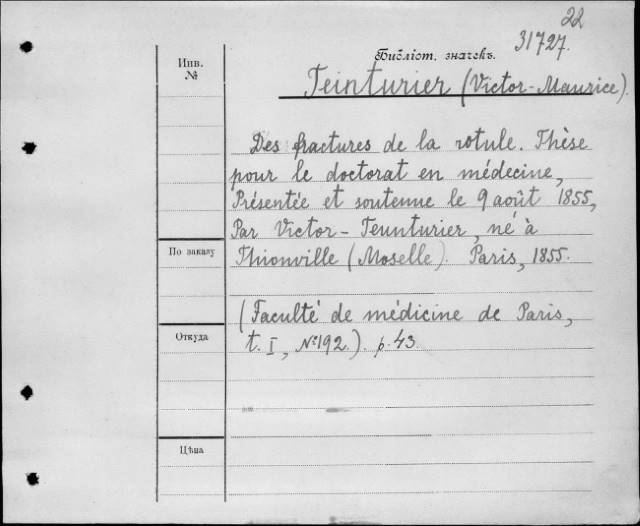 22
31727.
Инв.
№
Библіот. значекъ.
Teinturier (Victor-Maurice).
Des fractures de la rotule. Thèse
pour le doctorat en médecine,
Présentée et soutenue le 9 août 1855,
Par Victor-Teunturier, né à
По заказу
Thionville (Moselle). Paris, 1855.
(Faculté de médicine de Paris,
Откуда
t. I, № 192.). p. 43.
Цѣна